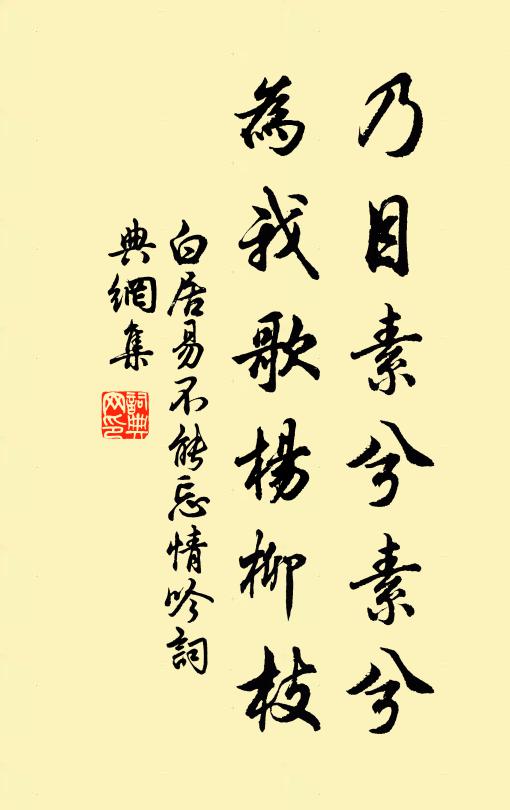 乃目素兮素兮
為我歌楊柳枝
白居易不能忘情吟詞
典網集
詞典
网印